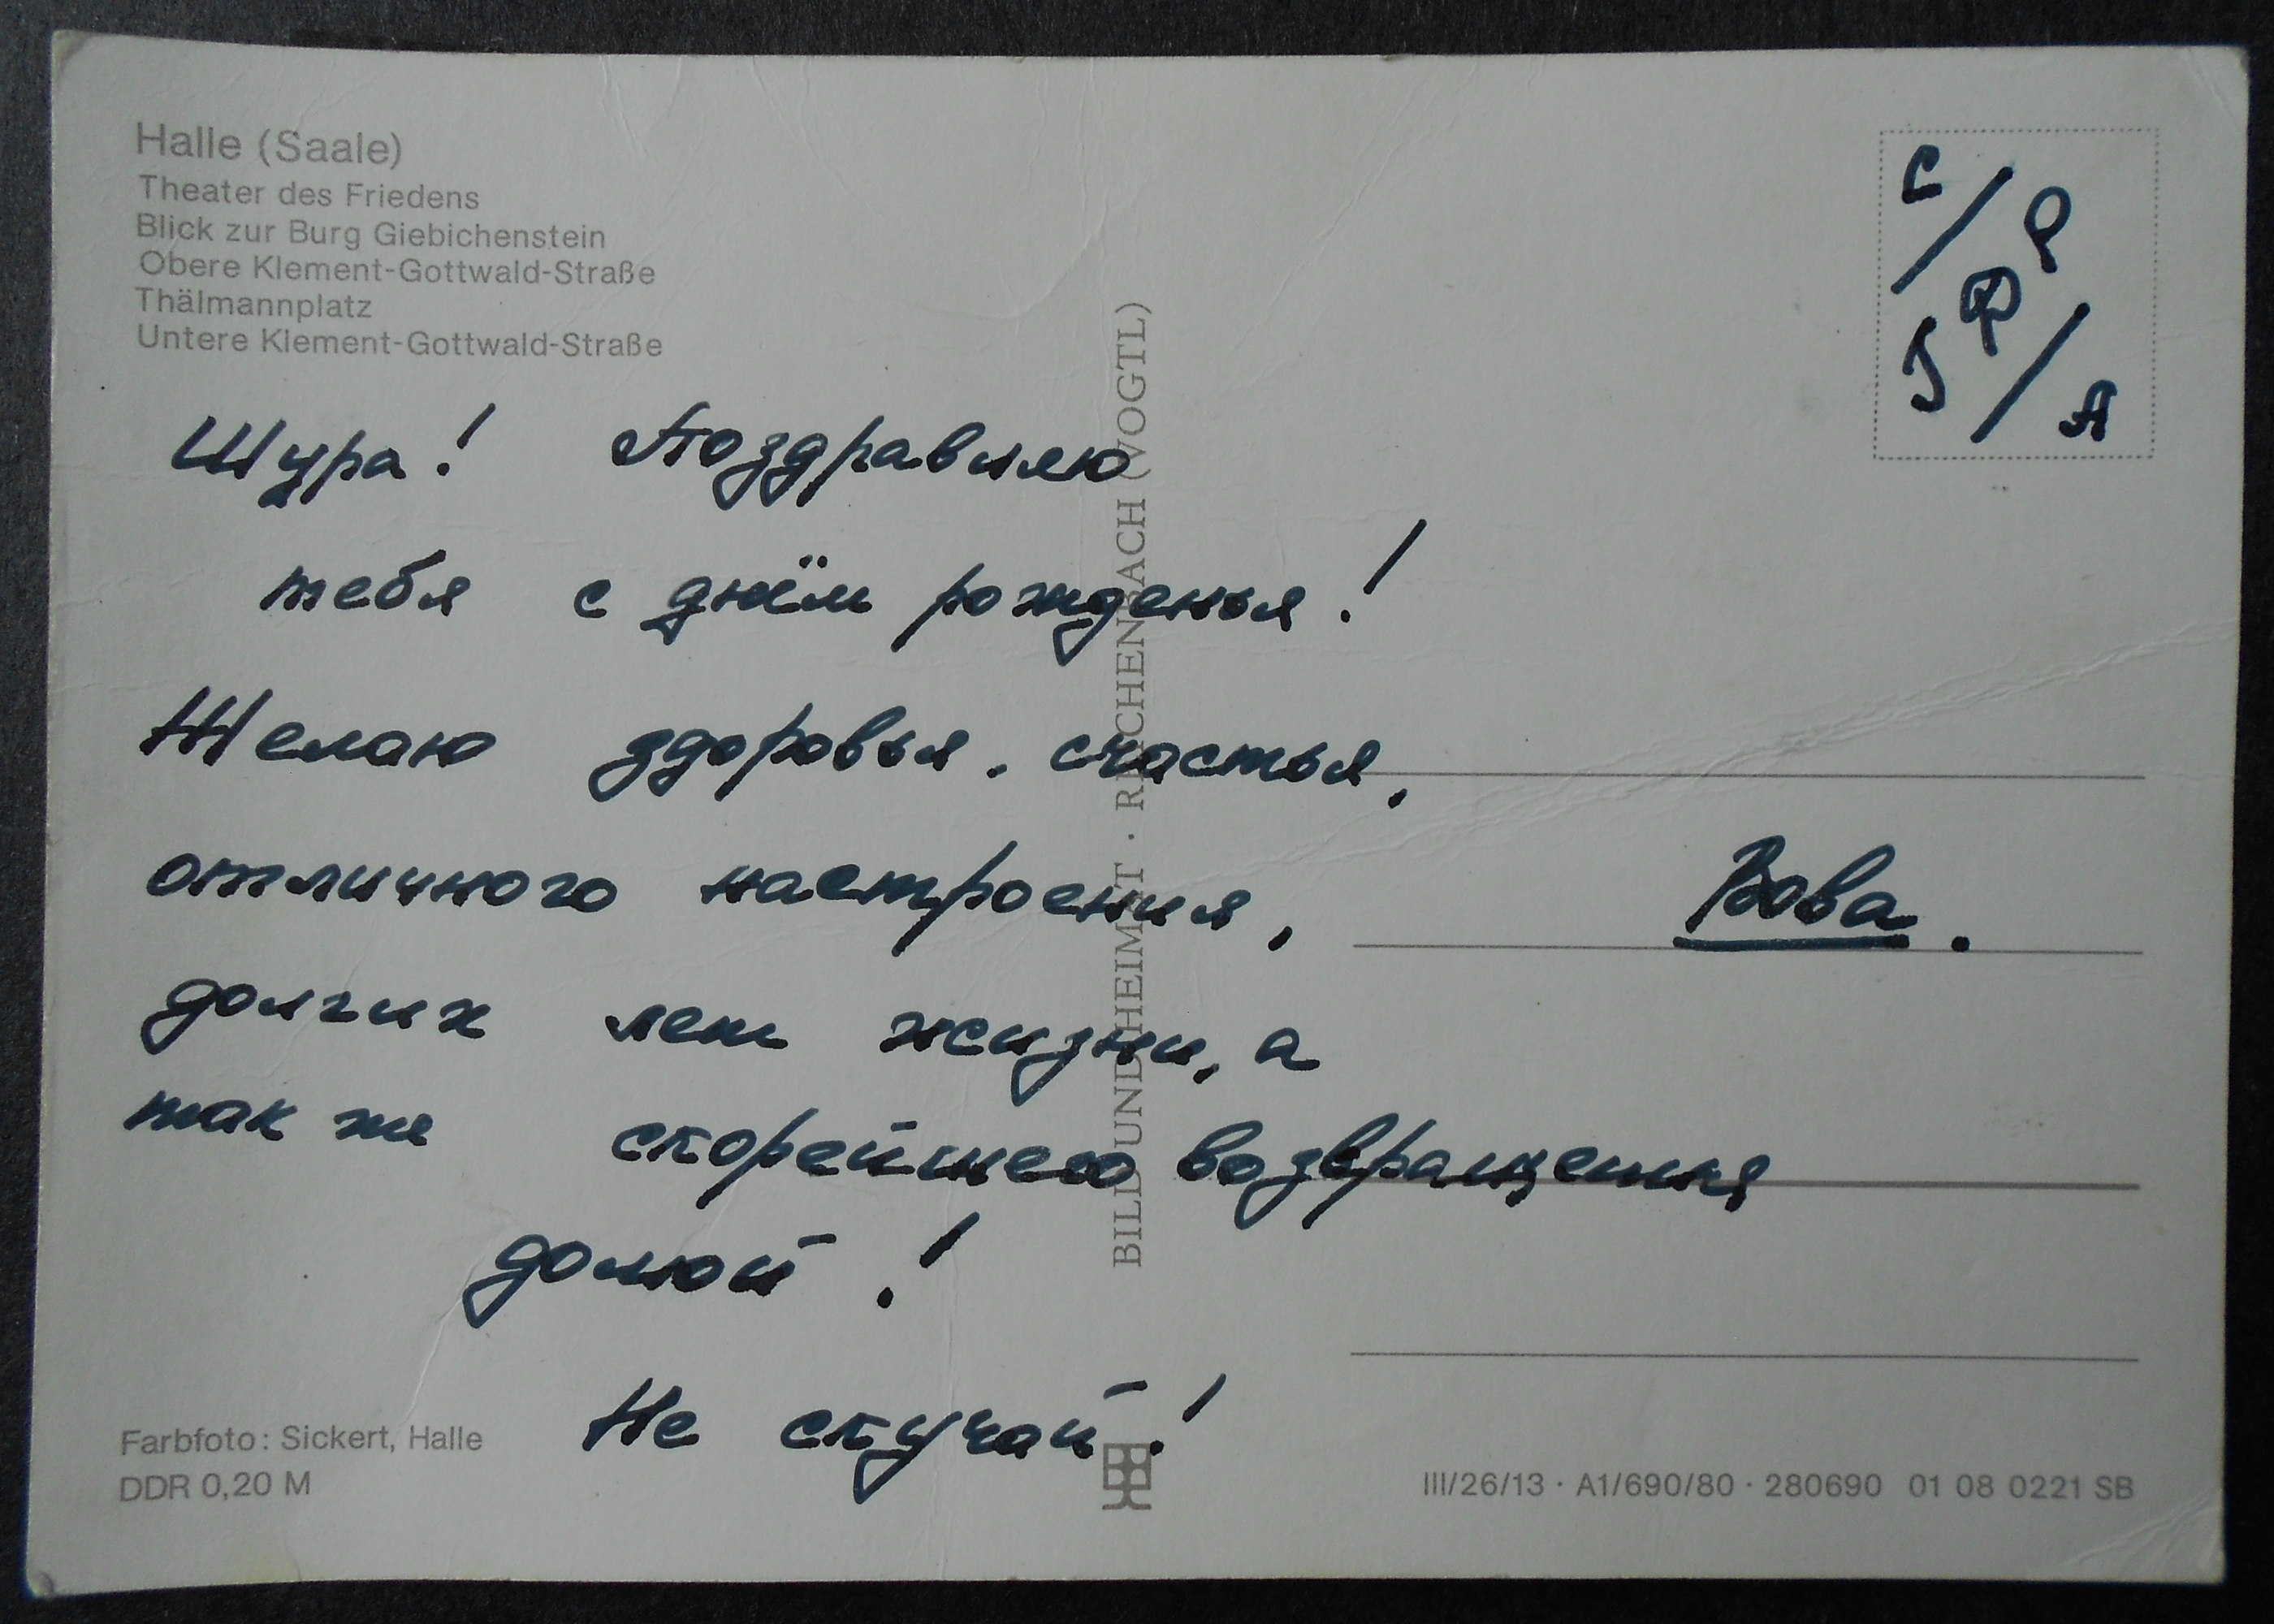 Halle (Saale)
Theater des Friedens
Blick zur Burg Giebichenstein
Obere Klement-Gottwald-Straße
Thälmannplatz
Untere Klement-Gottwald-Straße
Шура! Поздравляю
тебя с днём рожденья!
Желаю здоровья, счастья,
отличного настроения,
долгих лет жизни, а
так же скорейшего возвращения
домой!
Не скучай!
Вова.
BILD UND HEIMAT · REICHENBACH (VOGTL)
Farbfoto: Sickert, Halle
DDR 0,20 M
III/26/13 · A1/690/80 · 280690 01 08 0221 SB